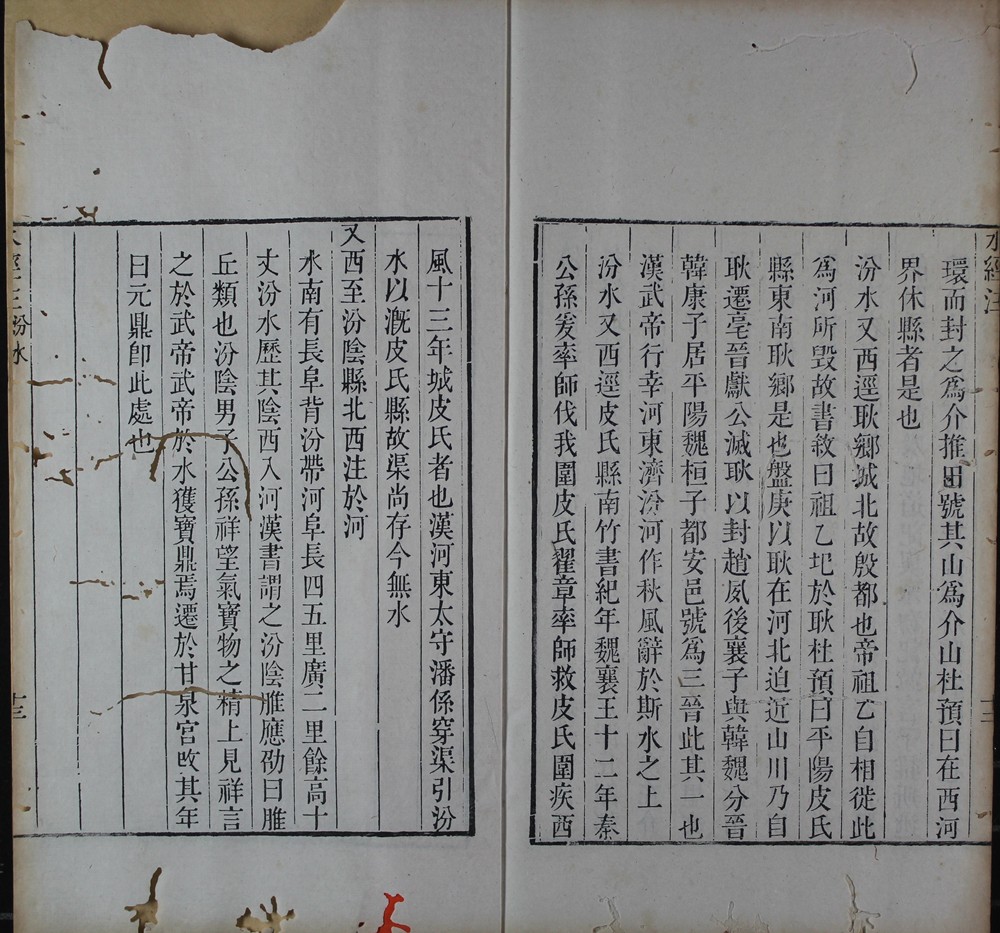 環而封之為介推田號其山為介山杜預曰在西河
界休縣者是也
汾水又西逕耿鄉城北故殷都也帝祖乙自相徙此
為河所毀故書敘曰祖乙圯於耿杜預曰平陽皮氏
縣東南耿鄉是也盤庚以耿在河北迫近山川乃自
耿遷亳晉獻公滅耿以封趙夙後襄子與韓魏分晉
韓康子居平陽魏桓子都安邑號為三晉此其一也
漢武帝行幸河東濟汾河作秋風辭於斯水之上
汾水又西逕皮氏縣南竹書紀年魏襄王十二年秦
公孫爰率師伐我圍皮氏翟章率師救皮氏圍疾西
風十三年城皮氏者也漢河東太守潘係穿渠引汾
水以溉皮氏縣故渠尚存今無水
又西至汾陰縣北西注於河
水南有長阜背汾帶河阜長四五里廣二里餘高十
丈汾水歷其陰西入河漢書謂之汾陰脽應劭曰脽
丘類也汾陰男子公孫祥望氣寶物之精上見祥言
之於武帝武帝於水獲寶鼎焉遷於甘泉宮改其年
曰元鼎卽此處也